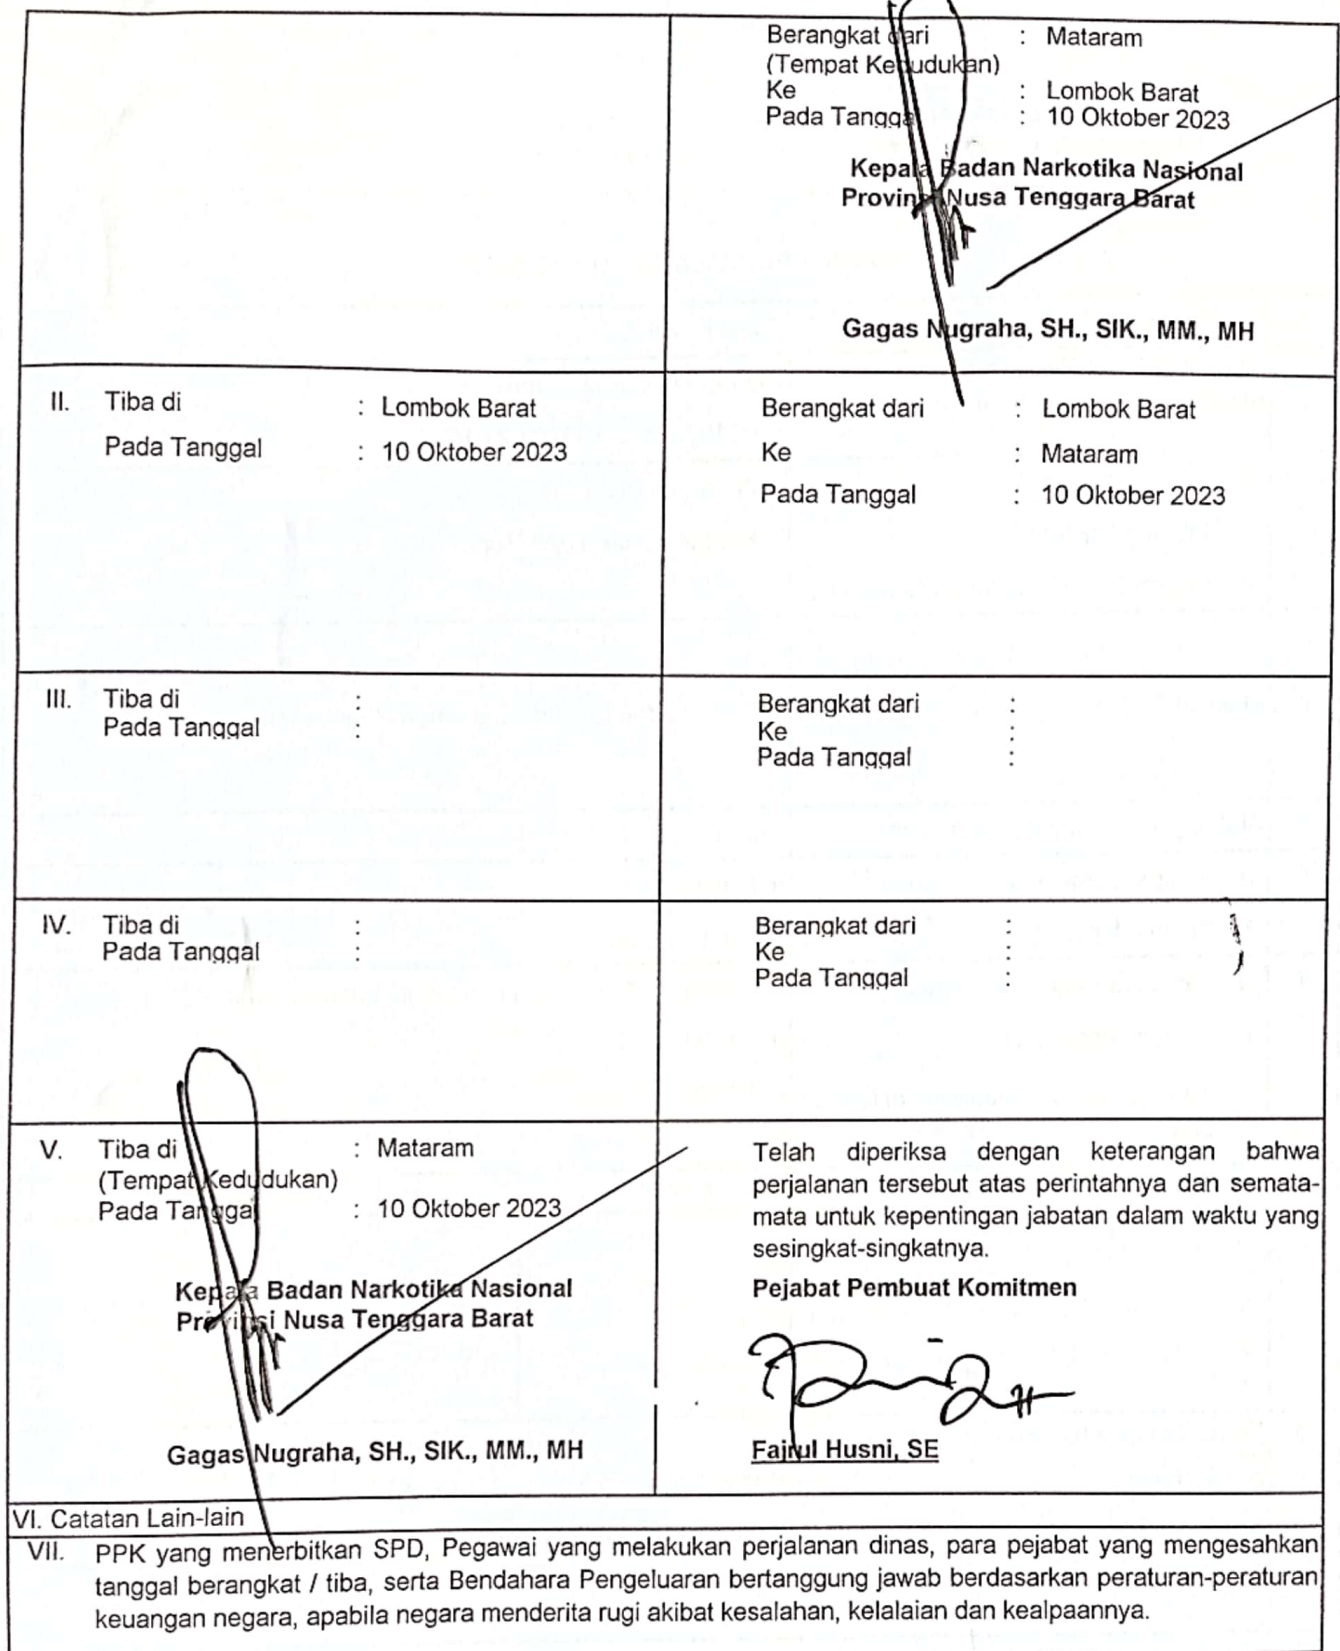 Berangkat dari : Mataram
(Tempat Kedudukan)
Ke : Lombok Barat
Pada Tanggal : 10 Oktober 2023
Kepala Badan Narkotika Nasional
Provinsi Nusa Tenggara Barat
Gagas Nugraha, SH., SIK., MM., MH
II. Tiba di : Lombok Barat
Pada Tanggal : 10 Oktober 2023
Berangkat dari : Lombok Barat
Ke : Mataram
Pada Tanggal : 10 Oktober 2023
III. Tiba di :
Pada Tanggal :
Berangkat dari :
Ke :
Pada Tanggal :
IV. Tiba di :
Pada Tanggal :
Berangkat dari :
Ke :
Pada Tanggal :
V. Tiba di : Mataram
(Tempat Kedudukan)
Pada Tanggal : 10 Oktober 2023
Kepala Badan Narkotika Nasional
Provinsi Nusa Tenggara Barat
Gagas Nugraha, SH., SIK., MM., MH
Telah diperiksa dengan keterangan bahwa
perjalanan tersebut atas perintahnya dan semata-
mata untuk kepentingan jabatan dalam waktu yang
sesingkat-singkatnya.
Pejabat Pembuat Komitmen
Fajrul Husni, SE
VI. Catatan Lain-lain
VII. PPK yang menerbitkan SPD, Pegawai yang melakukan perjalanan dinas, para pejabat yang mengesahkan
tanggal berangkat / tiba, serta Bendahara Pengeluaran bertanggung jawab berdasarkan peraturan-peraturan
keuangan negara, apabila negara menderita rugi akibat kesalahan, kelalaian dan kealpaannya.